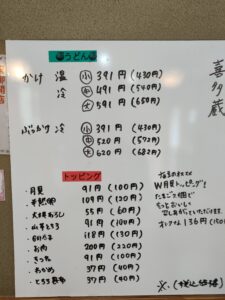 うどん
かけ 温 小 391円 (430円)
冷 中 491円 (540円)
大 591円 (650円)
ぶっかけ 冷 小 391円 (430円)
中 520円 (572円)
大 620円 (682円)
喜多蔵
トッピング
・月見 91円 (100円)
・半熟卵 109円 (120円)
・大根おろし 55円 (60円)
・山芋とろろ 91円 (100円)
118円 (130円)
・お肉 200円 (220円)
・きつね 91円 (100円)
・わかめ 37円 (40円)
・とろろ昆布 37円 (40円)
W月見トッピング!
たまご二個で
もっとおいしく
召しあがっていただけます。
136円 (150
※( )税込価格